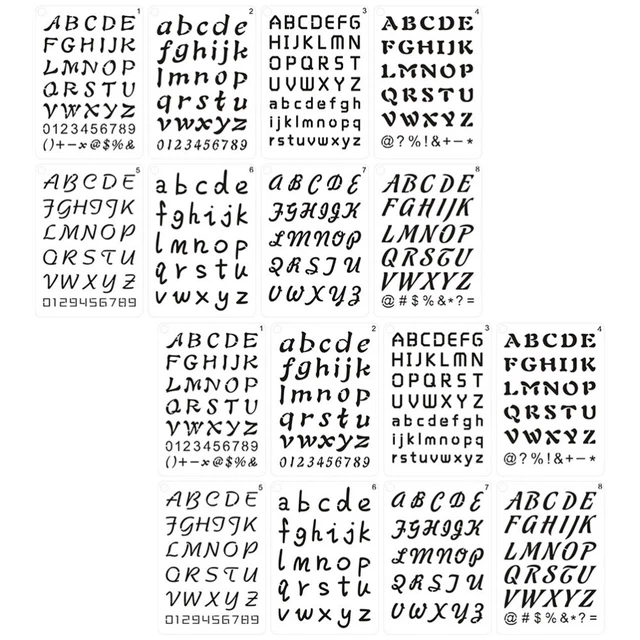 1
ABCDE
FGHIJK
LMNOP
QRSTU
VWXYZ
0123456789
()+−×@$%&
2
abcde
fghijk
lmnop
qrstu
vwxyz
0123456789
3
ABCDEFG
HIJKLMN
OPQRST
UVWXYZ
abcdefgh
ijklmnopq
rstuvwxyz
4
ABCDE
FGHIJK
LMNOP
QRSTU
VWXYZ
@?%!&+−*
5
ABCDE
FGHIJK
LMNOP
QRSTU
VWXYZ
0123456789
6
abcde
fghijk
lmnop
qrstu
vwxyz
7
ABCDE
FGHIJK
LMNOP
QRSTU
VWXYZ
8
ABCDE
FGHIJK
LMNOP
QRSTU
VWXYZ
@#$%&*?=
1
ABCDE
FGHIJK
LMNOP
QRSTU
VWXYZ
0123456789
()+−×@$%&
2
abcde
fghijk
lmnop
qrstu
vwxyz
0123456789
3
ABCDEFG
HIJKLMN
OPQRST
UVWXYZ
abcdefgh
ijklmnopq
rstuvwxyz
4
ABCDE
FGHIJK
LMNOP
QRSTU
VWXYZ
@?%!&+−*
5
ABCDE
FGHIJK
LMNOP
QRSTU
VWXYZ
0123456789
6
abcde
fghijk
lmnop
qrstu
vwxyz
7
ABCDE
FGHIJK
LMNOP
QRSTU
VWXYZ
8
ABCDE
FGHIJK
LMNOP
QRSTU
VWXYZ
@#$%&*?=